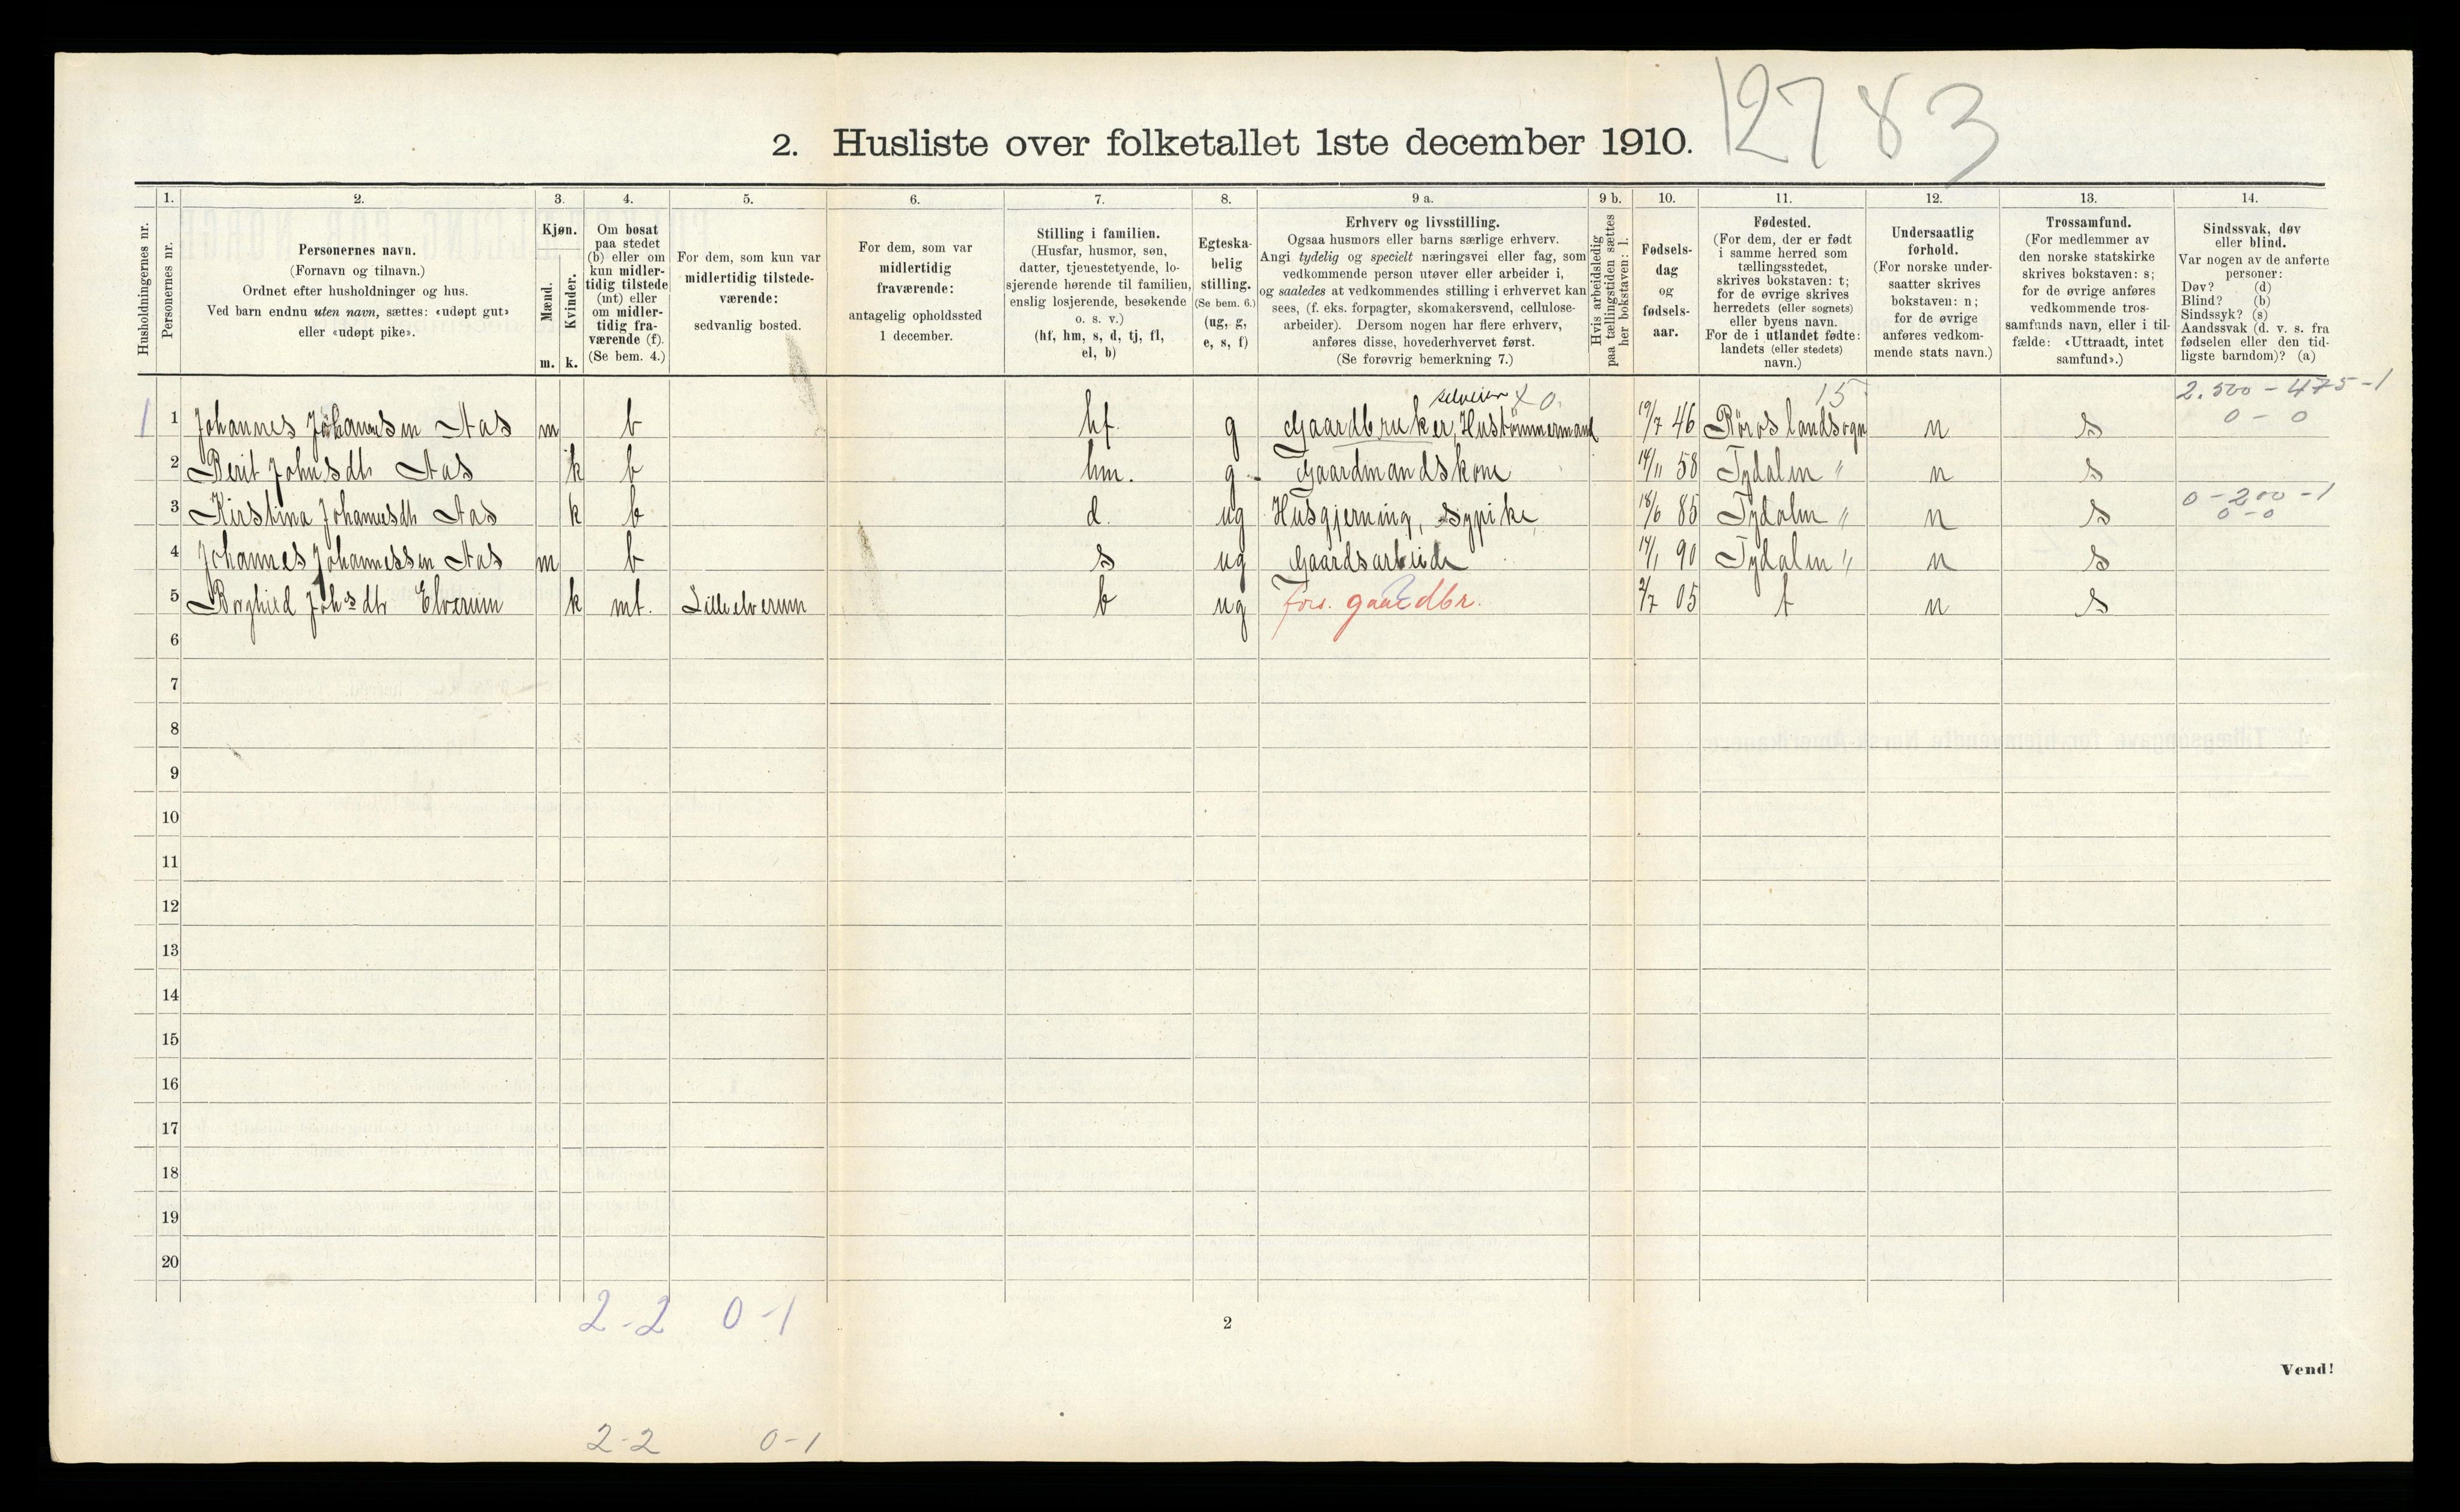 12783
2. Husliste over folketallet 1ste december 1910.
Husholdningernes nr.
1.
Personernes nr.
2.
Personernes navn.
(Fornavn og tilnavn.)
Ordnet efter husholdninger og hus.
Ved barn endnu uten navn, sættes: «udøpt gut»
eller «udøpt pike».
3.
Kjøn.
Mænd.
Kvinder.
m. k.
4.
Om bosat
paa stedet
(b) eller om
kun midler-
tidig tilstede
(mt) eller
om midler-
tidig fra-
værende (f).
(Se bem. 4.)
5.
For dem, som kun var
midlertidig tilstede-
værende:
sedvanlig bosted.
6.
For dem, som var
midlertidig
fraværende:
antagelig opholdssted
1 december.
7.
Stilling i familien.
(Husfar, husmor, søn,
datter, tjenestetyende, lo-
sjerende hørende til familien,
enslig losjerende, besøkende
o. s. v.)
(hf, hm, s, d, tj, fl,
el, b)
8.
Egteska-
belig
stilling.
(Se bem. 6.)
(ug, g,
e, s, f)
9 a.
Erhverv og livsstilling.
Ogsaa husmors eller barns særlige erhverv.
Angi tydelig og specielt næringsvei eller fag, som
vedkommende person utøver eller arbeider i,
og saaledes at vedkommendes stilling i erhvervet kan
sees, (f. eks. forpagter, skomakersvend, cellulose-
arbeider). Dersom nogen har flere erhverv,
anføres disse, hovederhvervet først.
(Se forøvrig bemerkning 7.)
9 b.
Hvis arbeidsledig
paa tællingstiden sættes
her bokstaven: l.
10.
Fødsels-
dag
og
fødsels-
aar.
11.
Fødested.
(For dem, der er født
i samme herred som
tællingsstedet,
skrives bokstaven: t;
for de øvrige skrives
herredets (eller sognets)
eller byens navn.
For de i utlandet fødte:
landets (eller stedets)
navn.)
12.
Undersaatlig
forhold.
(For norske under-
saatter skrives
bokstaven: n;
for de øvrige
anføres vedkom-
mende stats navn.)
13.
Trossamfund.
(For medlemmer av
den norske statskirke
skrives bokstaven: s;
for de øvrige anføres
vedkommende tros-
samfunds navn, eller i til-
fælde: «Uttraadt, intet
samfund».)
14.
Sindssvak, døv
eller blind.
Var nogen av de anførte
personer:
Døv? (d)
Blind? (b)
Sindssyk? (s)
Aandssvak (d. v. s. fra
fødselen eller den tid-
ligste barndom)? (a)
selveier x 0. 15 2.500 - 475 - 1
1 1 Johannes Johannesen Aas m b hf. g Gaardbruker, Hustømmermand 19/7 46 Röros landsogn n s 0 - 0
2 Berit Johnsdtr Aas k b hm. g - Gaardmandskone 14/11 58 Tydalen " n s
3 Kirstina Johannesdtr Aas k b d. ug Husgjerning, sypike 18/6 85 Tydalen " n s 0 - 200 - 1
0 - 0
4 Johannes Johannessen Aas m b s ug Gaardsarbeide 14/1 90 Tydalen " n s
5 Borghild Johsdtr Elverum k mt. Lilleelverum b ug fors. gaardbr. 2/7 05 t n s
6
7
8
9
10
11
12
13
14
15
16
17
18
19
20
2 - 2 0 - 1
2
Vend!
2 - 2 0 - 1